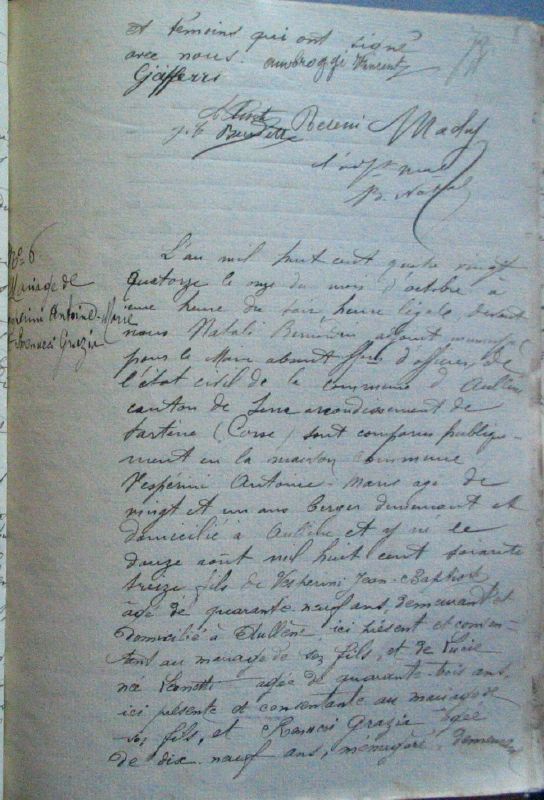 et témoins qui ont signé
avec nous. Ambroggi Vincent
Giafferri
Benedetti
L'adjt
L'an mil huit cent quatre vingt
quatorze le onze du mois d'octobre à
une heure du soir, heure légale devant
nous Natali adjoint
pour le Maire absent d'officier de
l'état civil de la commune d'Aullène
canton de Serra arrondissement de
Sartène (Corse) sont comparus publique-
ment en la maison commune
Vesperini Antoine-Marie agé de
vingt et un ans berger demeurant et
domicilié à Aullène et y né le
douze août mil huit cent soixante
treize fils de Vesperini Jean-Baptiste
âgé de quarante neuf ans, demeurant et
domicilié à Aullène, ici présent et consen-
tant au mariage de son fils, et de Lucie
né agée de quarante trois ans,
ici présente et consentante au mariage de
son fils, et Grazia agée
de dix neuf ans, ménagère, demeurant
No 6
Mariage de
Vesperini Antoine-Marie
et Grazia